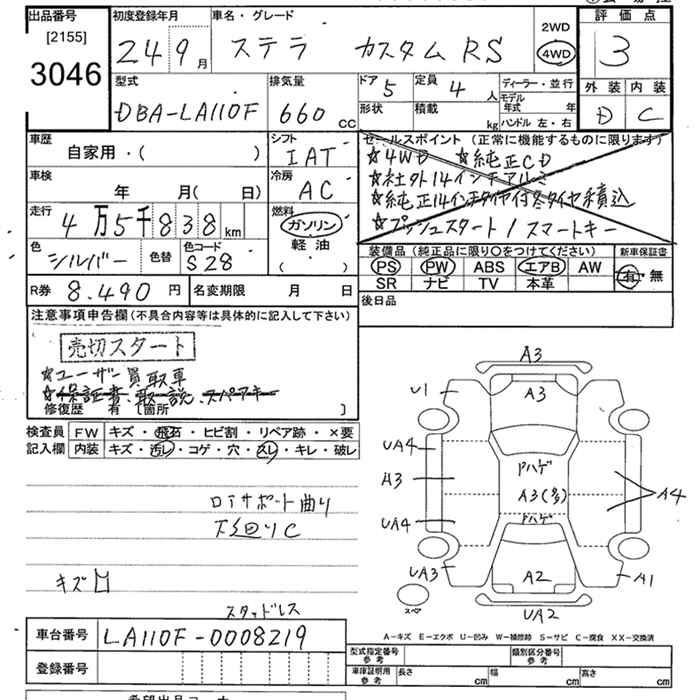 出品番号
[2155]
3046
初度登録年月
24 9月
車名・グレード
ステラ カスタム RS
2WD
4WD
評価点
3
外装 内装
D C
型式
DBA-LA110F
排気量
660 cc
ドア 5
定員 4 人
形状
積載 kg
ディーラー・並行
モデル年式 年
ハンドル 左・右
車歴
自家用・( )
シフト
IAT
車検
年 月( 日)
冷房
AC
走行
4万5千838km
燃料
ガソリン
軽油
( )
色
シルバー
色替
色コード
S28
セールスポイント (正常に機能するものに限ります)
☆4WD ☆純正CD
☆社外14インチアルミ
☆純正14インチタイヤ付冬タイヤ積込
☆プッシュスタート/スマートキー
装備品 (純正品に限り○をつけてください)
新車保証書
PS PW ABS エアB AW
SR ナビ TV 本革
有・無
R券 8.490 円
名変期限 月 日
後日品
注意事項申告欄(不具合内容等は具体的に記入して下さい)
売切スタート
☆ユーザー買取車
☆保証書、取説、スペアキー
修復歴 有 [箇所 ]
検査員記入欄
FW キズ・飛石・ヒビ割・リペア跡・×要
内装 キズ・汚レ・コゲ・穴・スレ・キレ・破レ
コアサポート曲り
下廻りC
キズ
スタッドレス
A3
A3
U1
UA4
A3
UA4
UA3
Pハゲ
A3(多)
Pハゲ
A4
A2
A1
UA2
スペア
A−キズ E−エクボ U−凹み W−補修跡 S−サビ C−腐食 XX−交換済
車台番号 LA110F-0008219
登録番号
型式指定番号 参考
類別区分番号 参考
車庫証明用 参考
長さ cm 幅 cm 高さ cm